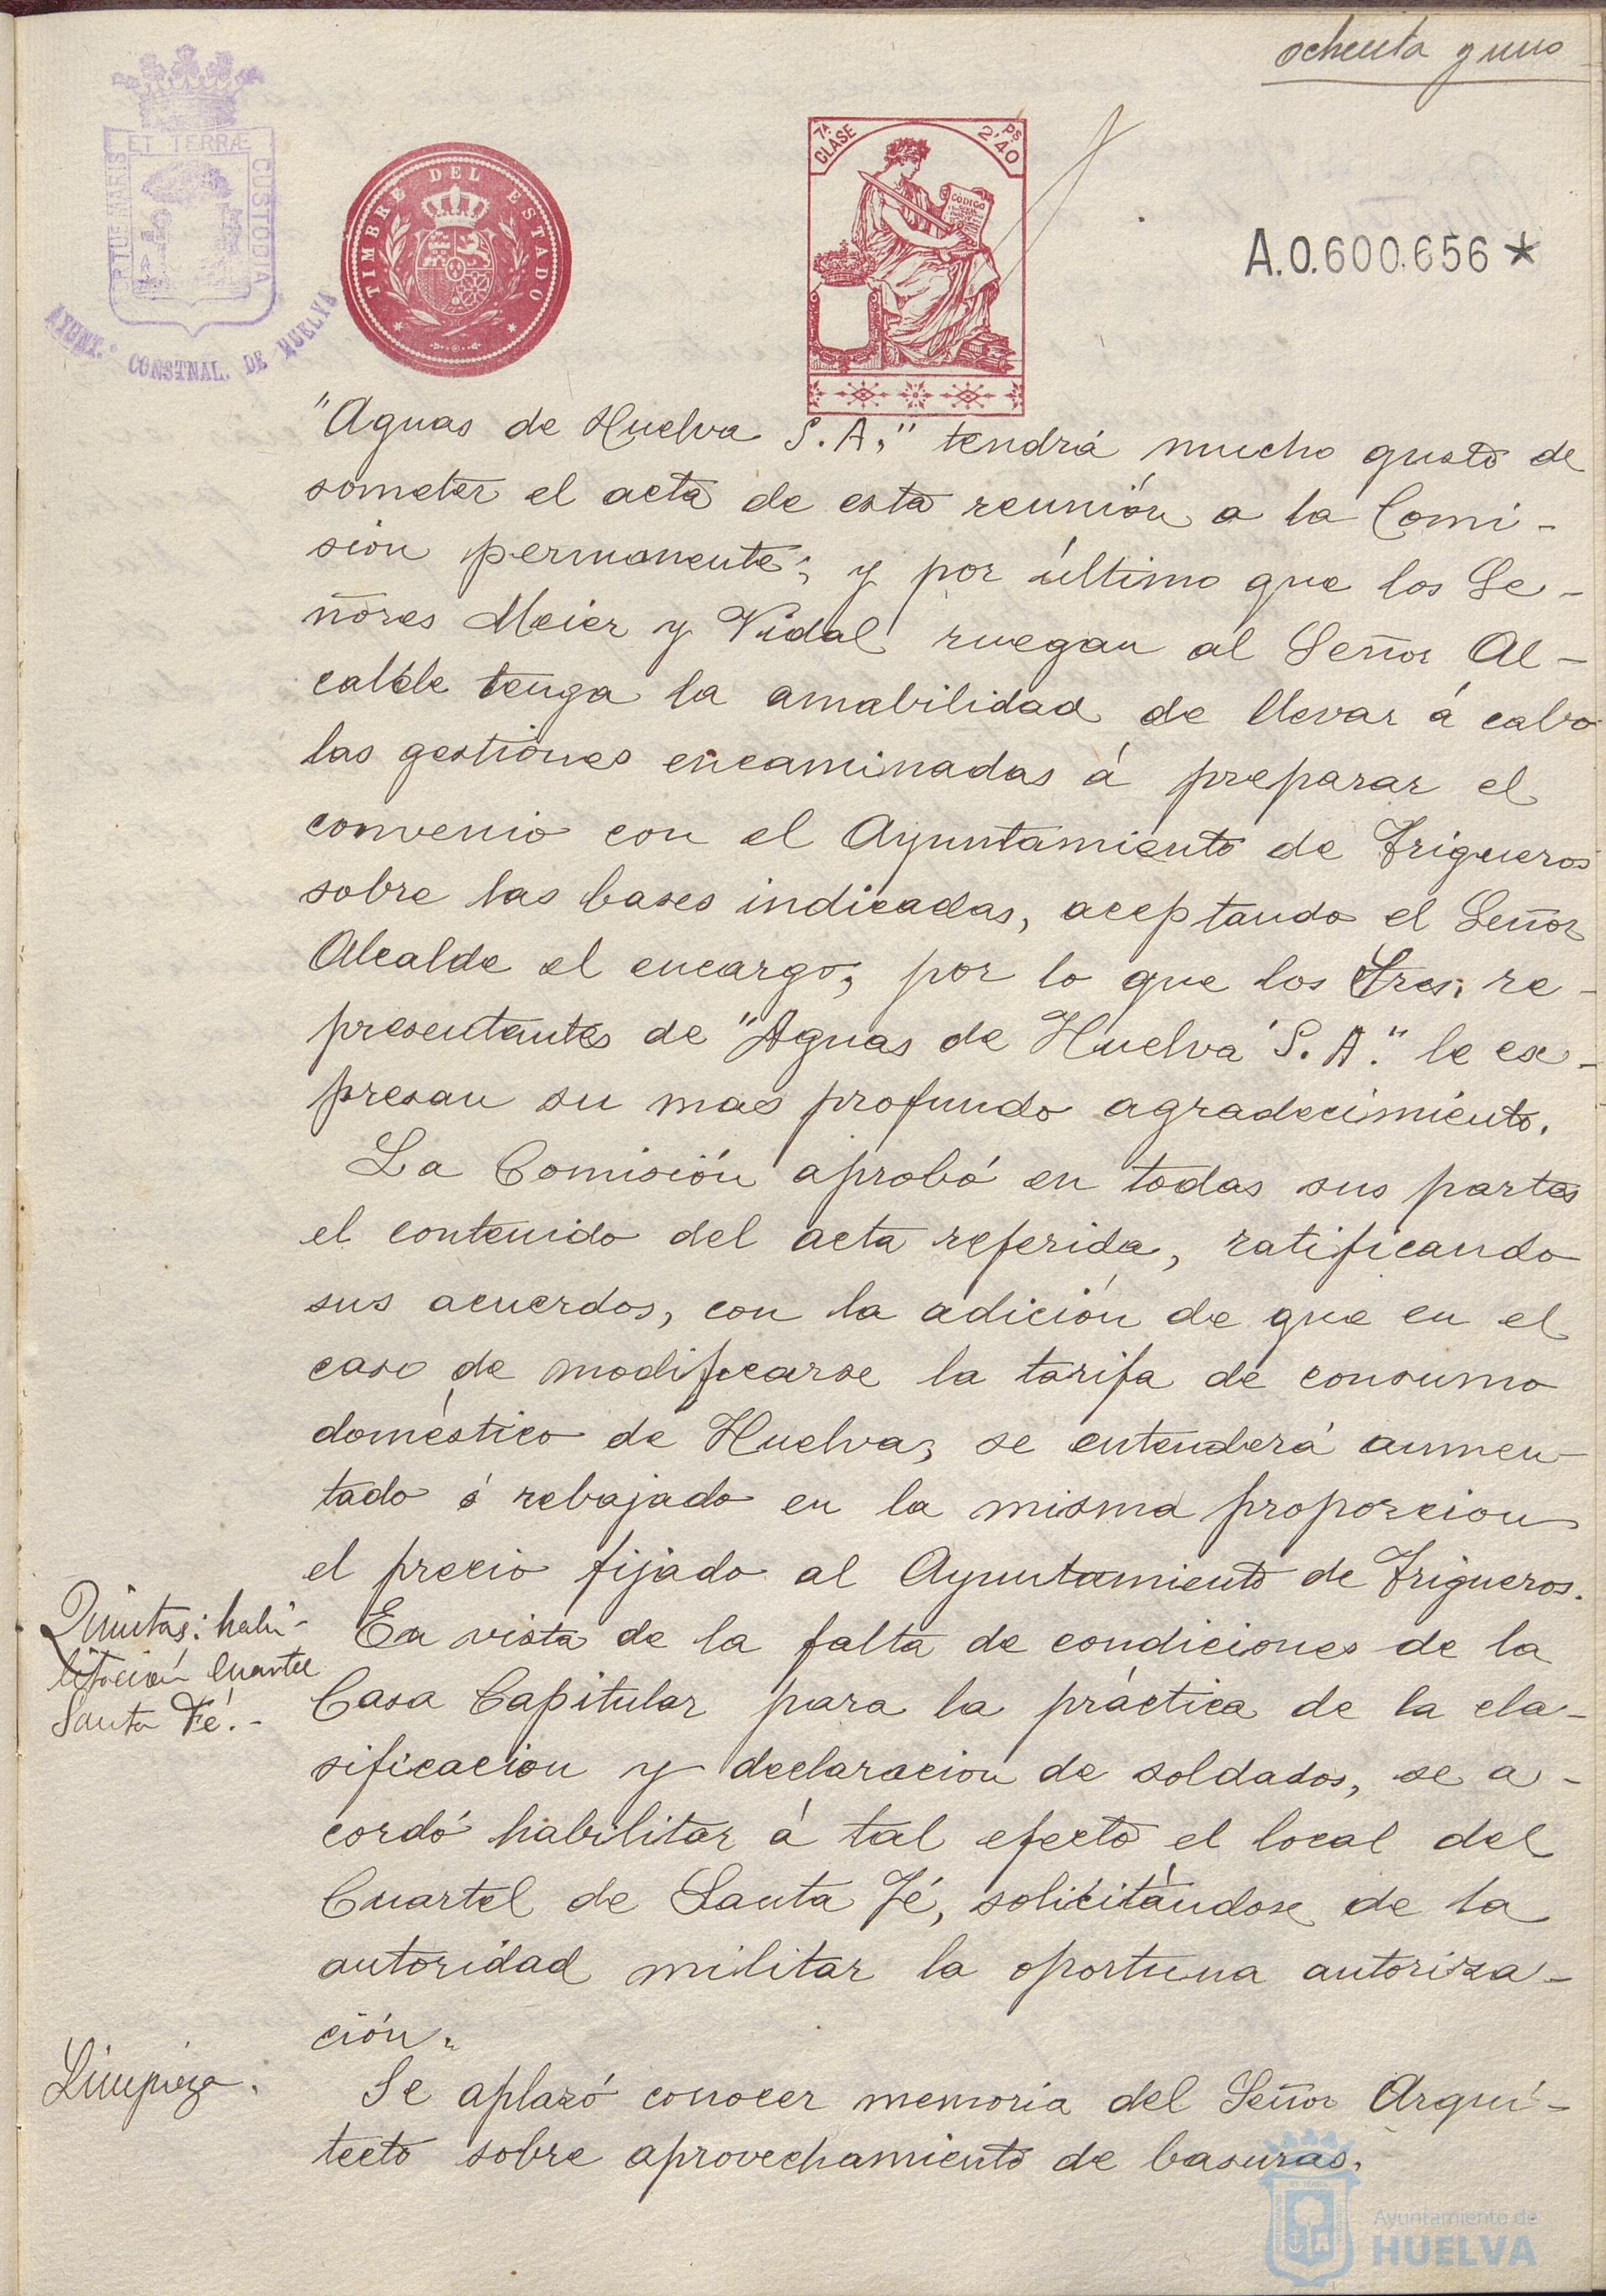 ochenta y uno
ET TERRÆ
PORTUS MARIS
CUSTODIA
AYUNT.º CONSTNAL. DE HUELVA
TIMBRE DEL ESTADO
7ª CLASE
PS 2'40
CODIGO
A.0.600.656*
"Aguas de Huelva S.A," tendrá mucho gusto de
someter el acta de esta reunión a la Comi-
sion permanente; y por último que los Se-
ñores Meier y Vidal ruegan al Señor Al-
calde tenga la amabilidad de llevar á cabo
las gestiones encaminadas á preparar el
convenio con el Ayuntamiento de Trigueros
sobre las bases indicadas, aceptando el Señor
Alcalde el encargo, por lo que los Sres. re-
presentantes de "Aguas de Huelva S.A." le ex-
presan su mas profundo agradecimiento.
La Comisión aprobó en todas sus partes
el contenido del acta referida, ratificando
sus acuerdos, con la adición de que en el
caso de modificarse la tarifa de consumo
doméstico de Huelva, se entenderá aumen-
tado ó rebajado en la misma proporcion
el precio fijado al Ayuntamiento de Trigueros.
Quintas: habi-
litación Cuartel
Santa Fé.-
En vista de la falta de condiciones de la
Casa Capitular para la práctica de la cla-
sificacion y declaracion de soldados, se a-
cordó habilitar á tal efecto el local del
Cuartel de Santa Fé, solicitándose de la
autoridad militar la oportuna autoriza-
ción.
Limpieza.
Se aplazó conocer memoria del Señor Arqui-
tecto sobre aprovechamiento de basuras.
Ayuntamiento de
HUELVA